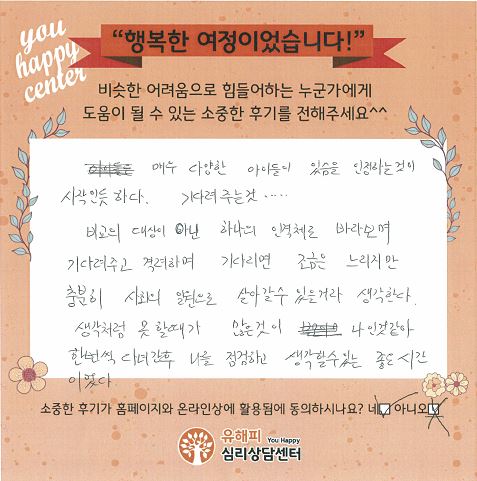 you
happy
center
“행복한 여정이었습니다!”
비슷한 어려움으로 힘들어하는 누군가에게
도움이 될 수 있는 소중한 후기를 전해주세요^^
매우 다양한 아이들이 있음을 인정하는것이
시작인듯 하다. 기다려 주는것 ‥‥‥
비교의 대상이 아닌 하나의 인격체로 바라보며
기다려주고 격려하며 기다리면 조금은 느리지만
충분히 사회의 일원으로 살아갈수 있을거라 생각한다.
생각처럼 못 할때가 많은것이 나인것같아
한번씩 다녀간후 나를 점검하고 생각할수있는 좋은 시간
이었다
소중한 후기가 홈페이지와 온라인상에 활용됨에 동의하시나요? 네 아니오
유해피 You Happy
심리상담센터